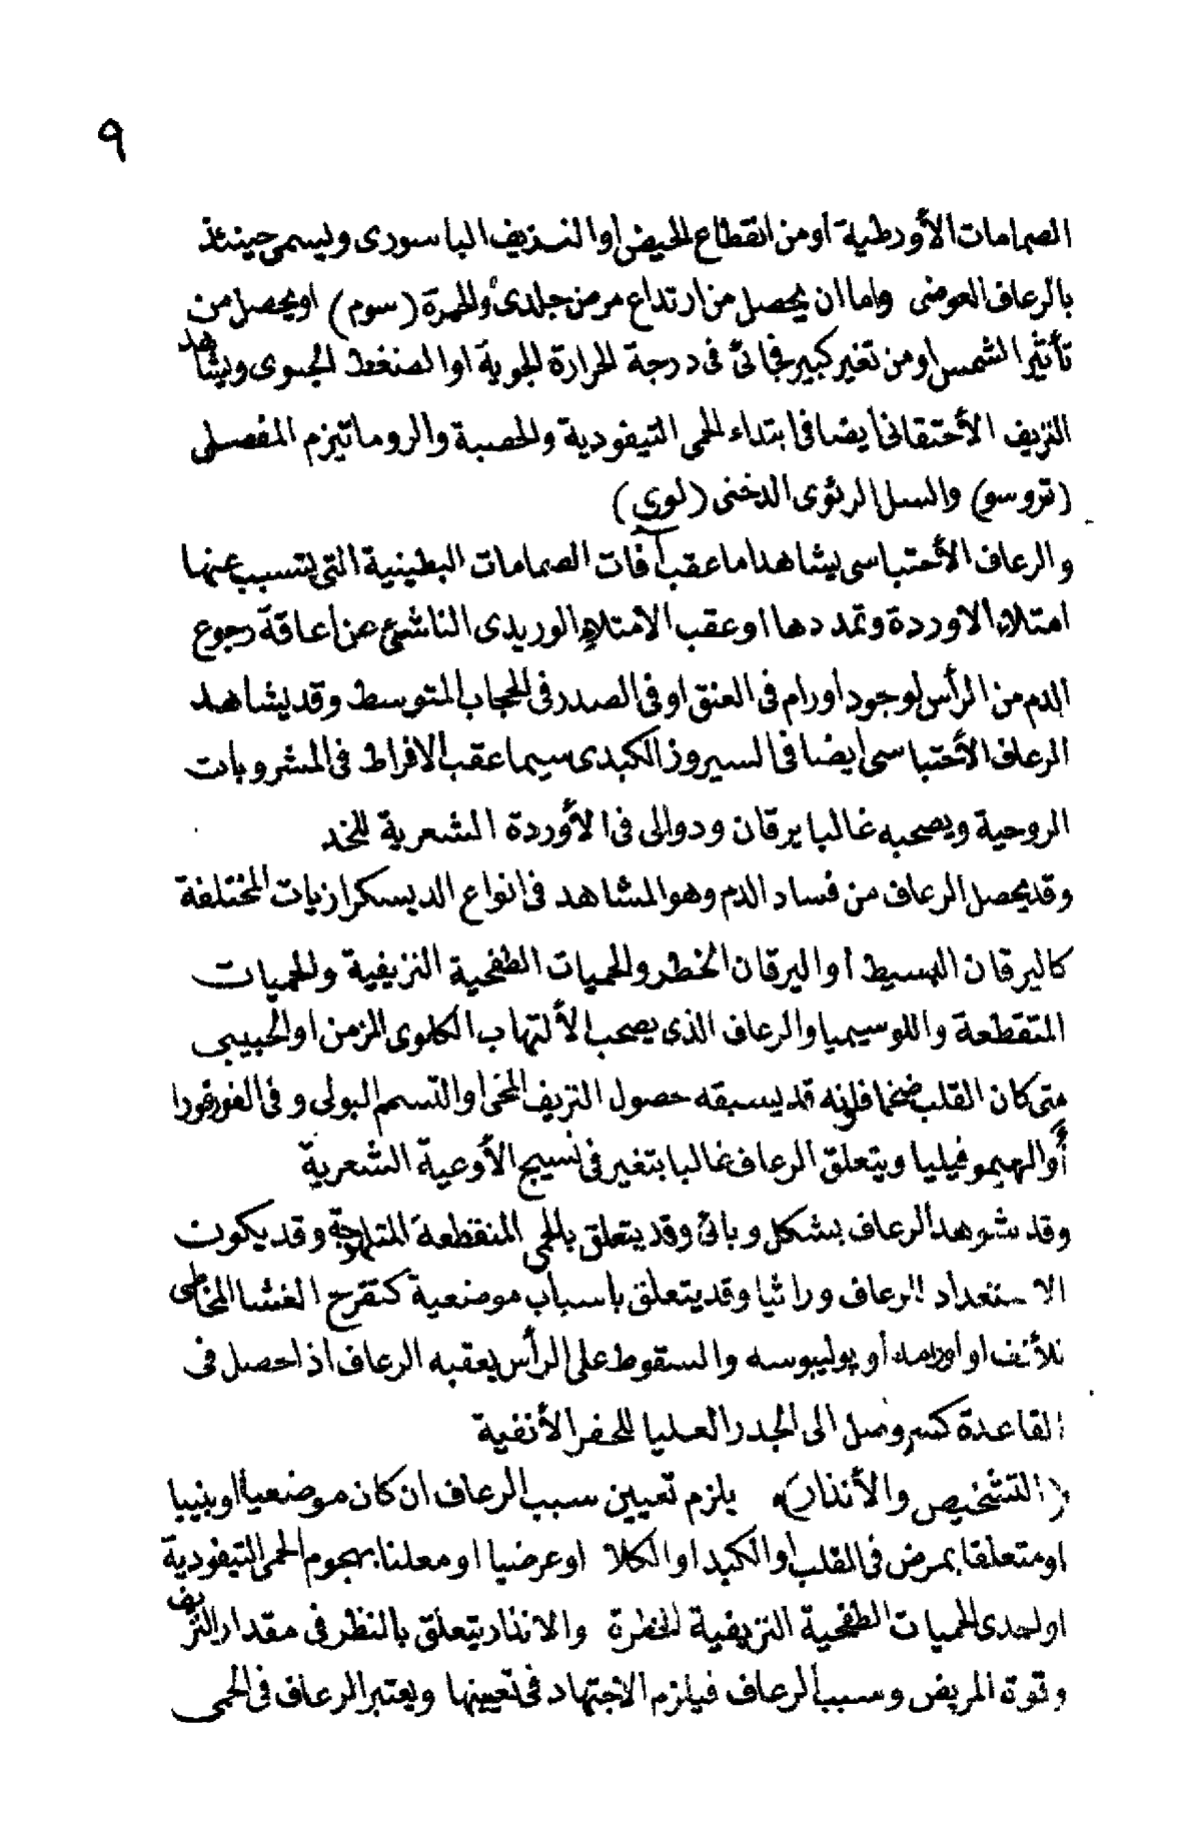 ٩
الصمامات الأورطية او من انقطاع الحيض او النزيف الباسورى ويسمى حينئذ
بالرعاف العوضى واما ان يحصل من ارتداع مرض جلدى والحمرة (سوم) او يحصل من
تأثير الشمس او من تغير كبير فجائى فى درجة الحرارة الجوية او الضغط الجوى ويشاهد
النزيف الأحتقانى ايضا فى ابتداء الحمى التيفودية والحصبة والروماتيزم المفصلى
(تروسو) والسل الرئوى الدخنى (لورى)
والرعاف الأحتباسى يشاهد اما عقب آفات الصمامات البطينية التى يتسبب عنها
امتلاء الاوردة وتمددها او عقب الامتلاء الوريدى الناشئ عن اعاقة رجوع
الدم من الرأس لوجود اورام فى العنق او فى الصدر فى الحجاب المتوسط وقد يشاهد
الرعاف الأحتباسى أيضا فى السيروز الكبدى سيما عقب الافراط فى المشروبات
الروحية ويصحبه غالبا يرقان ودوالى فى الأوردة الشعرية للخد
وقد يحصل الرعاف من فساد الدم وهو المشاهد فى انواع الديسكرازيات المختلفة
كاليرقان البسيط أو اليرقان الخطر والحميات الطفحية النزيفية والحميات
المتقطعة واللوسيميا والرعاف الذى يصحب الألتهاب الكلوى المزمن او الحبيبى
متى كان القلب ضخما فإنه قد يسبقه حصول النزيف المخى او التسمم البولى وفى الفورفورا
أو الهيموفيليا ويتعلق الرعاف غالبا بتغير فى نسيج الأوعية الشعرية
وقد شوهد الرعاف بشكل وبائى وقد يتعلق بالحمى المنقطعة المتلهوجة وقد يكون
الاستعداد للرعاف وراثيا وقد يتعلق باسباب موضعية كتقرح الغشا المخاطى
للأنف او أورامه أو پوليبوسه والسقوط على الرأس يعقبه الرعاف اذا حصل فى
القاعدة كسر وصل الى الجدر العليا للحفر الأنفية
(التشخيص والأنذار) يلزم تعيين سبب الرعاف ان كان موضعيا او بنييا
او متعلقا بمرض فى القلب او الكبد او الكلا او عرضيا او معلنا بهجوم الحمى التيفودية
او احدى الحميات الطفحية النزيفية الخطرة والانذار يتعلق بالنظر فى مقدار النزيف
وقوة المريض وسبب الرعاف فيلزم الاجتهاد فى تعيينها ويعتبر الرعاف فى الحمى